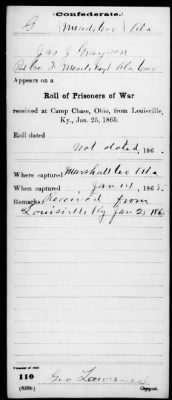 (Confederate.)
G Ala
Jas J Grayson
Pvt Co F Ala Cav
Appears on a
Roll of Prisoners of War
received at Camp Chase, Ohio, from Louisville,
Ky., Jan. 25, 1865.
Roll dated
Not dated, 186 .
Where captured Marshall Co Ala
When captured Jan 14, 186 .
Remarks: Received from
Louisville Ky Jan 25 186
Number of roll:
110
(639b) Geo Lawrence
Copyist.